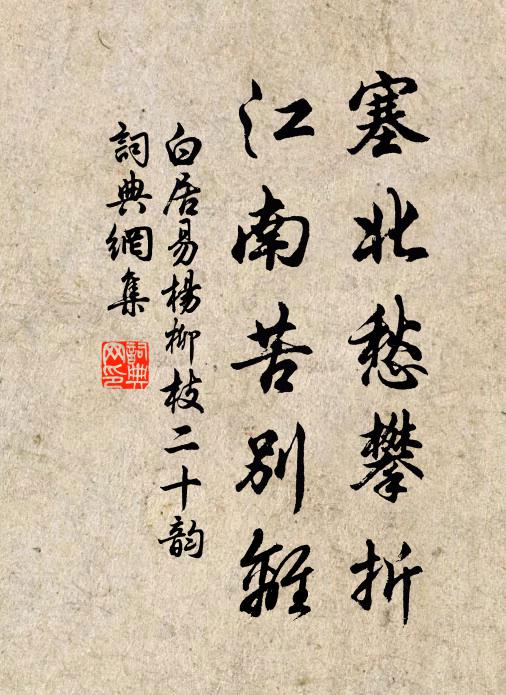 塞北愁攀折
江南苦別離
白居易楊柳枝二十韵
詞典網集
詞典
网印